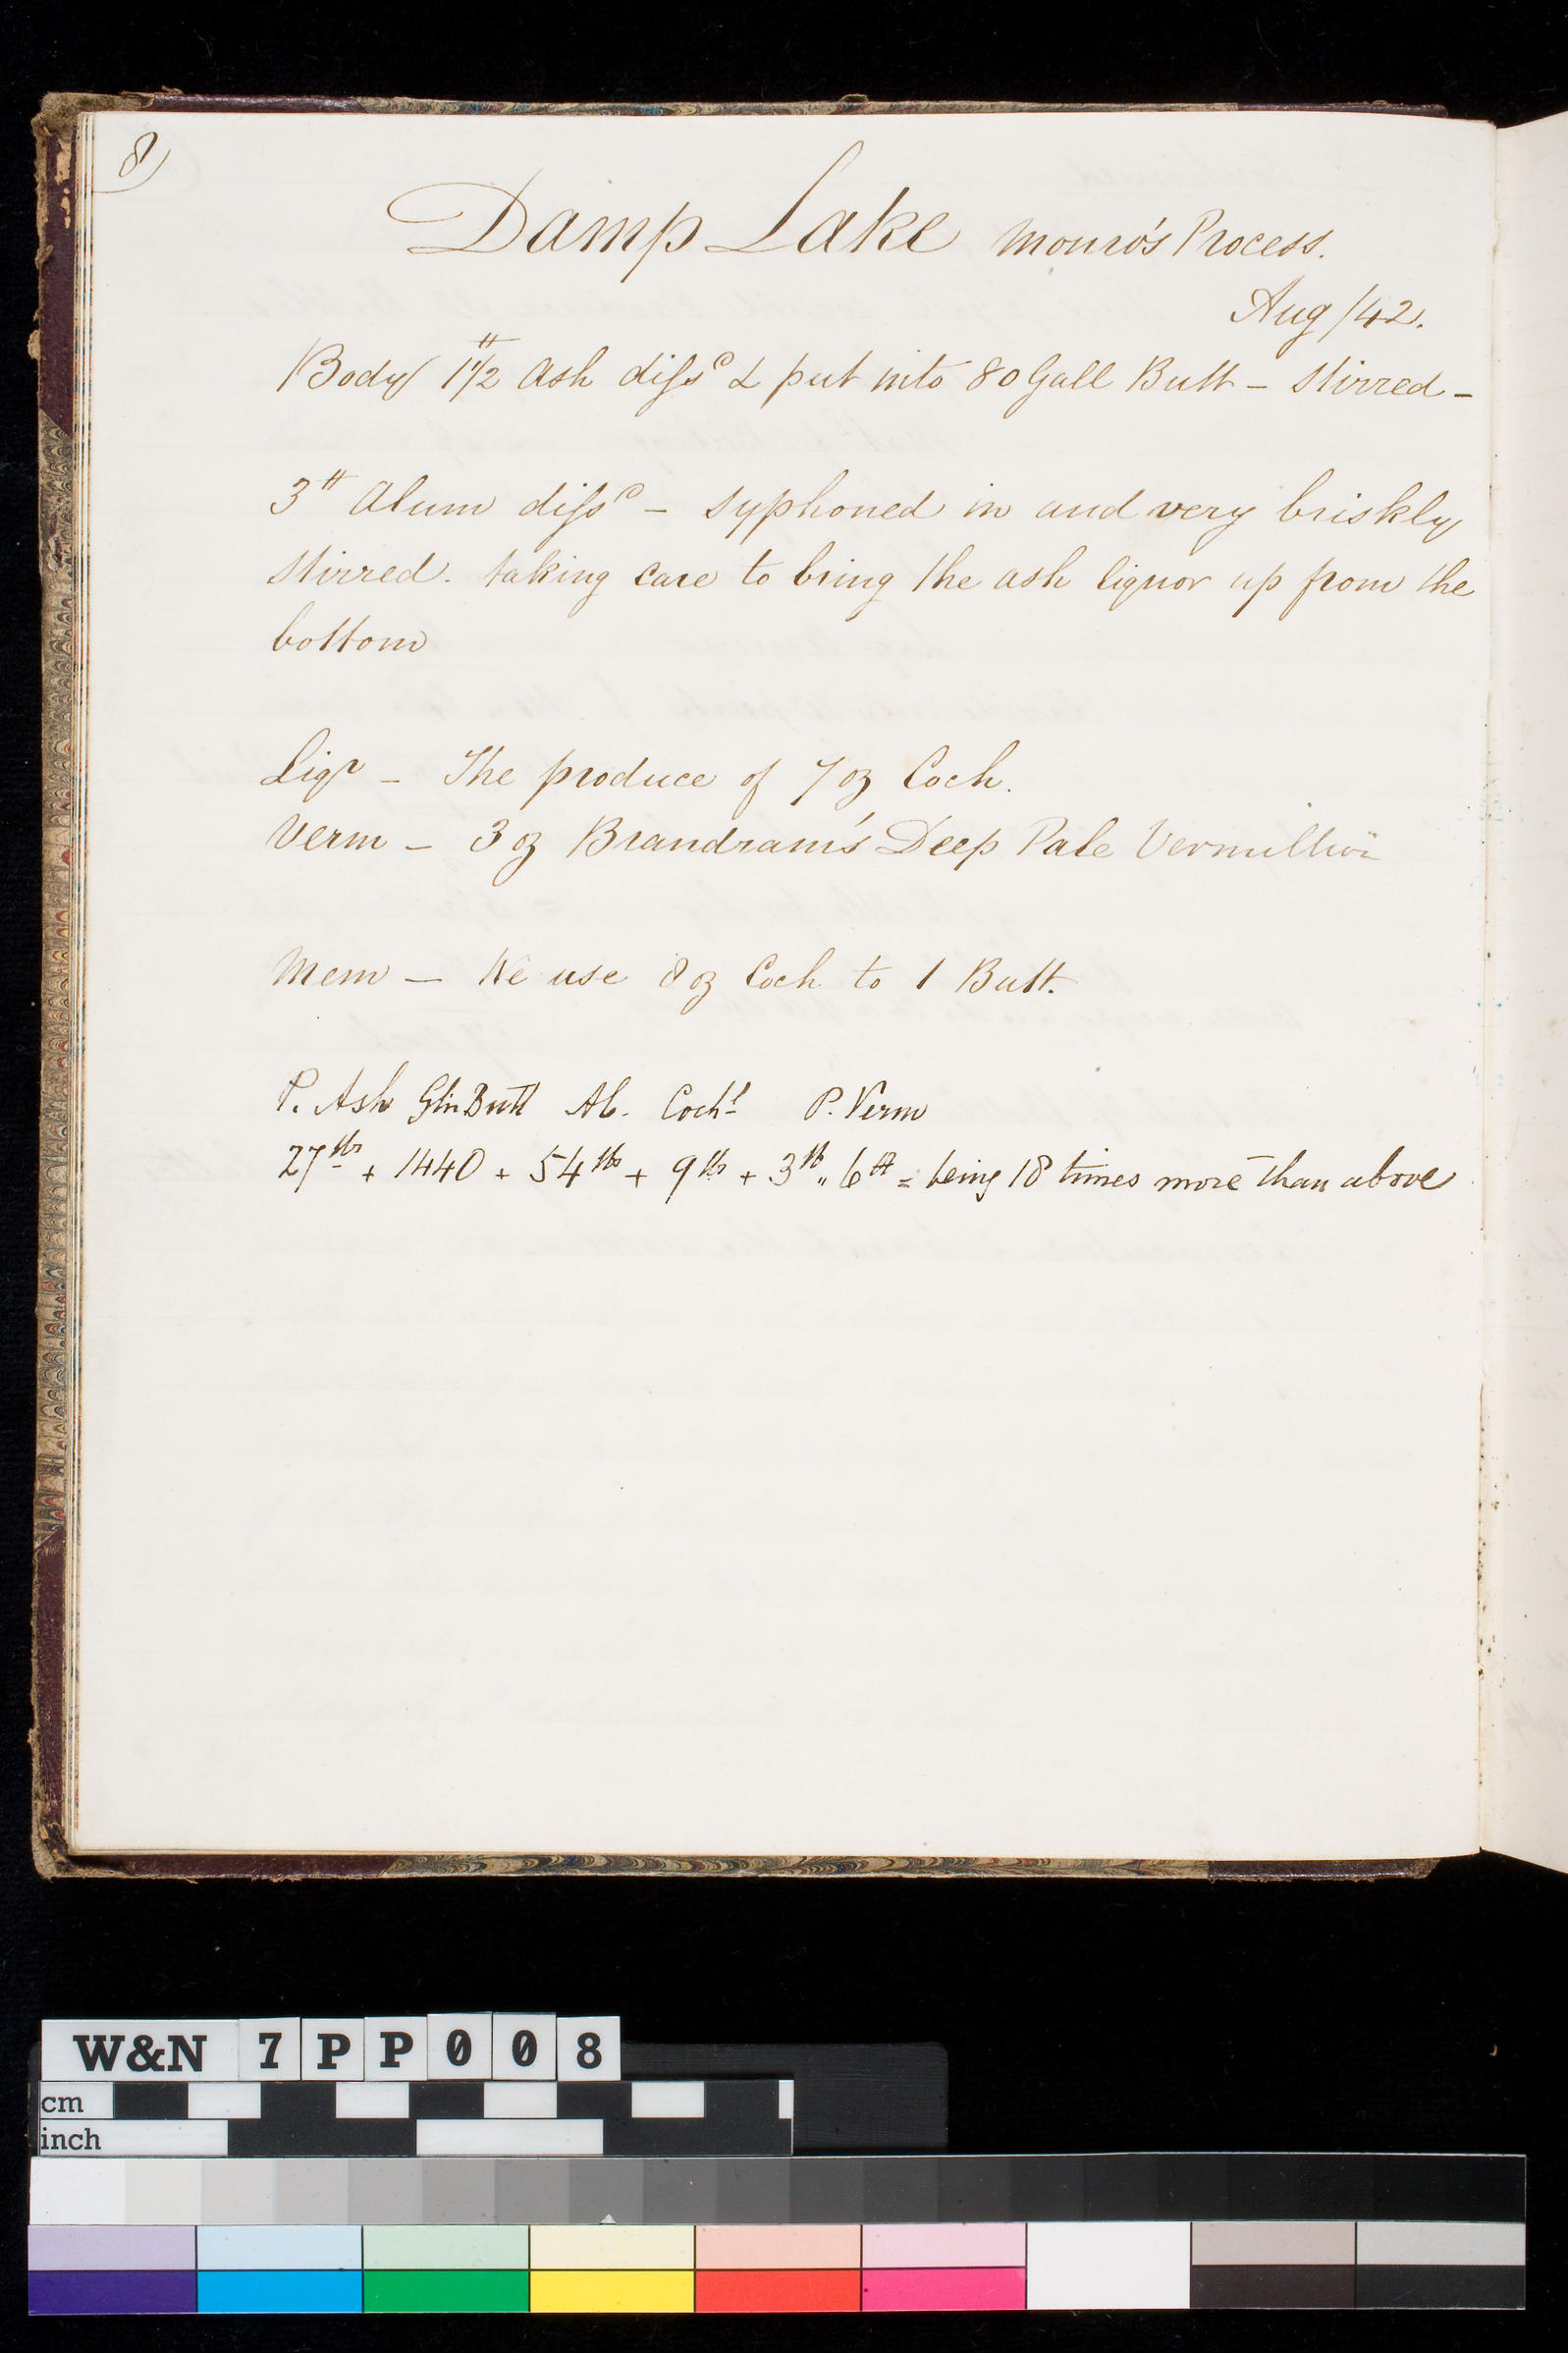 8)
Damp Lake Monro's Process.
Aug /42.
Body/ 1 1/2 ℔ Ash diſsd & put into 80 Gall Butt – Stirred –
3 ℔ Alum diſsd – Syphoned in and very briskly
Stirred. taking care to bring the ash liquor up from the
bottom
Liqr – The produce of 7 oz Coch.
Verm – 3 oz Brandram's Deep Pale Vermillion
Mem – We use 8 oz Coch to 1 Butt.
P. Ash Butt Al. Cochl P. Verm
27 lbs + 1440 + 54 lbs + 9 lbs + 3 lb " 6 = being 18 times more than above
W&N 7PP008
cm
inch